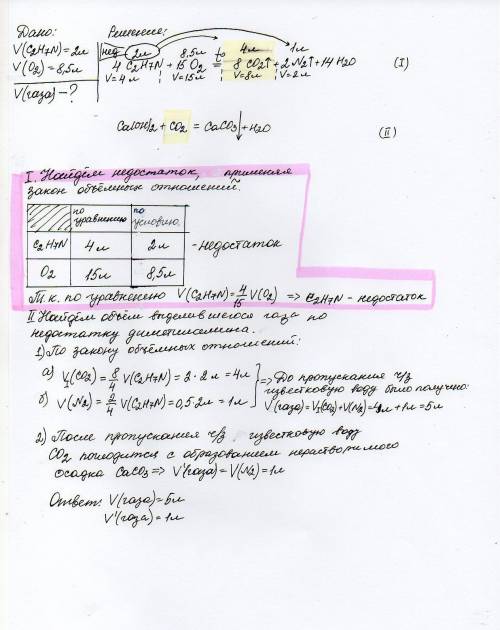 Дано:
V(C2H7N)=2л
V(O2)=8,5л
V(газа)-?
Решение:
нед. 2л 8,5л to 4л 1л
4 C2H7N + 15 O2 = 8 CO2↑ + 2 N2↑ + 14 H2O (I)
V=4л V=15л V=8л V=2л
Ca(OH)2 + CO2 = CaCO3↓ + H2O (II)
I. Найдём недостаток, применяя
закон объёмных отношений.
по уравнению по условию
C2H7N 4л 2л - недостаток
O2 15л 8,5л
Т.к. по уравнению V(C2H7N)=4/15 V(O2) => C2H7N - недостаток
II Найдём объём выделившегося газа по
недостатку диметиламина.
1) По закону объёмных отношений:
а) V1(CO2)=8/4 V(C2H7N)=2·2л=4л
б) V(N2)=2/4 V(C2H7N)=0,5·2л=1л
=> До пропускания ч/з
известковую воду было получено:
V(газа)=V1(CO2)+V(N2)=4л+1л=5л
2) После пропускания ч/з известковую воду
CO2 поглотится с образованием нерастворимого
осадка CaCO3 => V'(газа)=V(N2)=1л
Ответ: V(газа)=5л
V'(газа)=1л